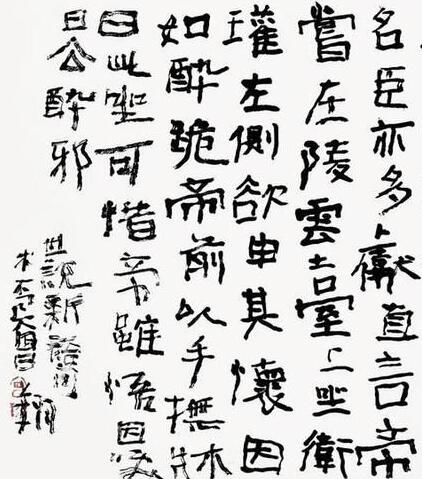 名臣亦多獻直言帝
嘗在陵雲臺上坐衛
瓘左側欲申其懷因
如醉跪帝前以手撫牀
曰此坐可惜帝雖悟因笑
曰公醉邪
世說新語